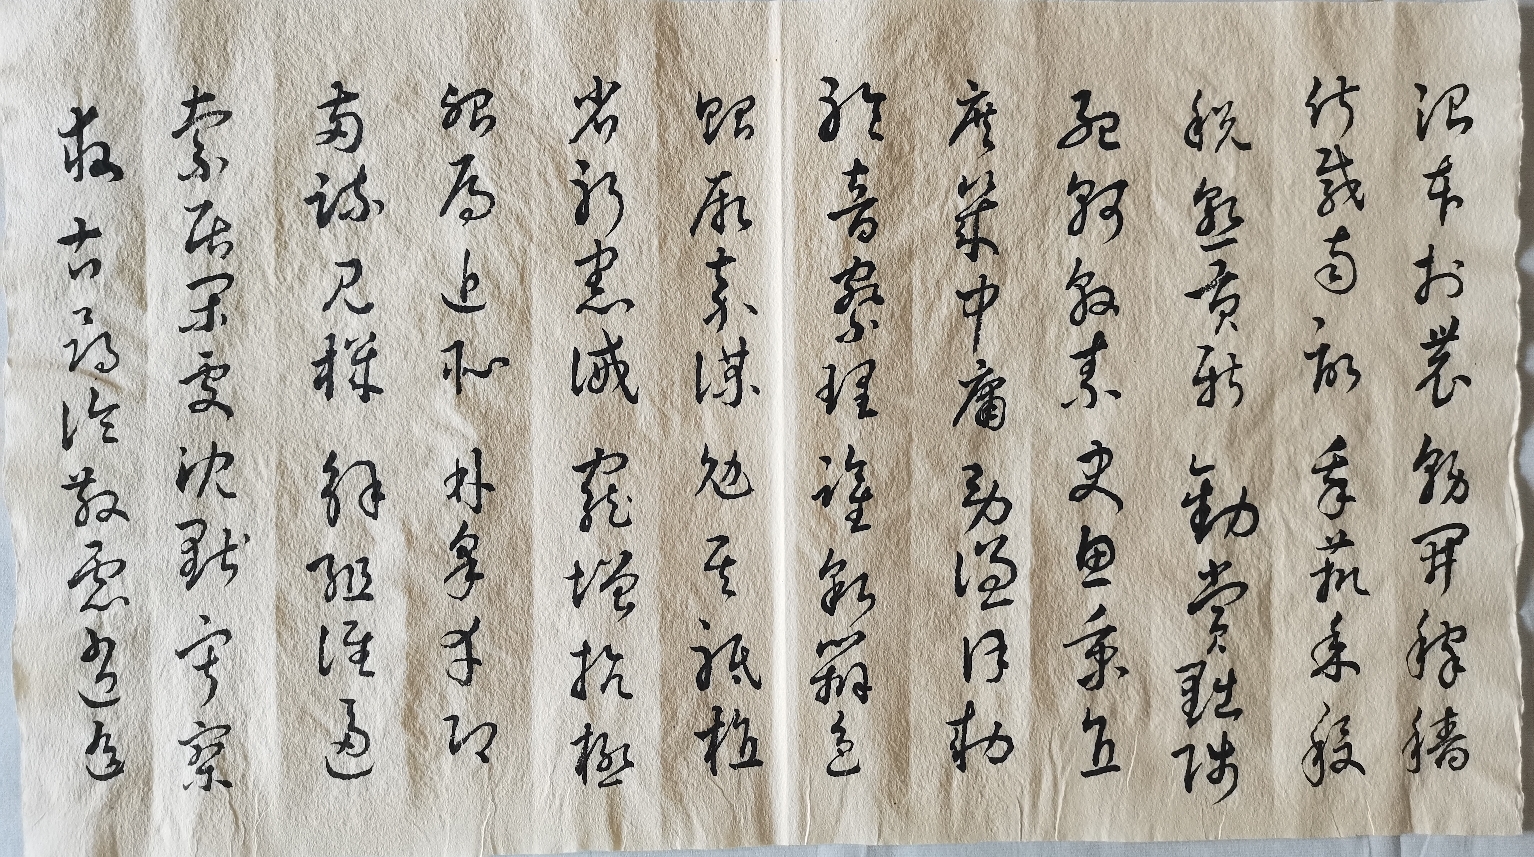 治本於農務茲稼穡
俶載南畝我藝黍稷
稅熟貢新勸賞黜陟
孟軻敦素史魚秉直
庶幾中庸勞謙謹勅
聆音察理鑑皃辯色
貽厥嘉猷勉其祗植
省躬譏誡寵增抗極
殆辱近恥林皋幸即
兩疏見機解組誰逼
索居閑處沈默寂寥
求古尋論散慮逍遙